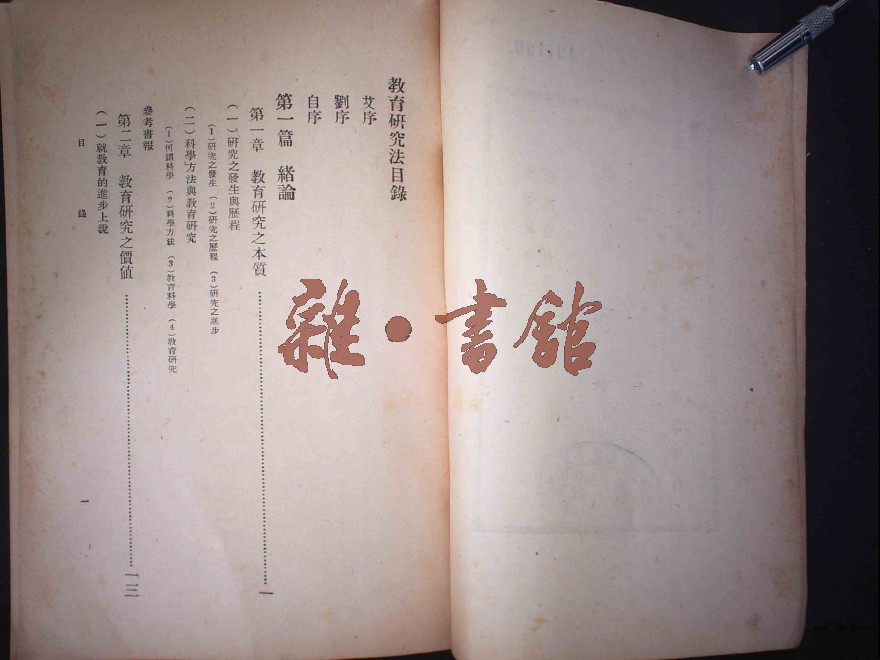 教育研究法目錄
艾序
劉序
自序
第一篇 緒論
第一章 教育研究之本質……一
（一）研究之發生與歷程
（1）研究之發生 （2）研究之歷程 （3）研究之進步
（二）科學方法與教育研究
（1）何謂科學 （2）科學方法 （3）教育科學 （4）教育研究
參考書報
第二章 教育研究之價値……一三
（一）就教育的進步上說
目 錄
一
雜·書館